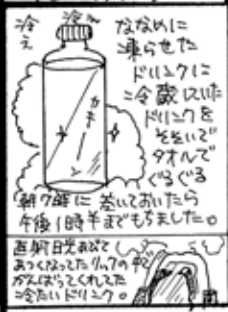 冷え
冷〜
ななめに
凍らせた
ドリンクに
冷蔵していた
ドリンクを
そそいで
タオルで
ぐるぐる
カキーン
朝7時に 巻いておいたら
午後1時半までもちました。
直射日光あびて
あつくなってたリュックの中で
がんばってくれてた
冷たいドリンク。